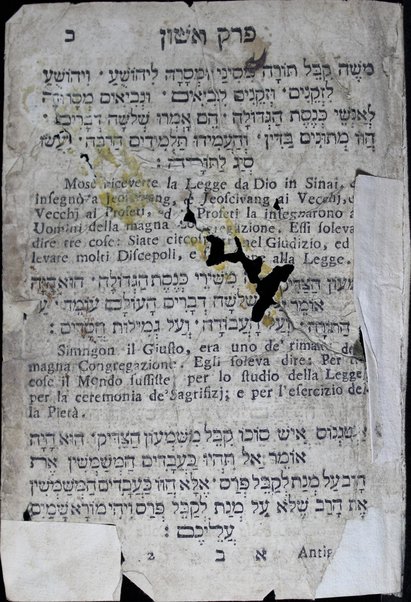 פרק ראשון ב
משֶׁה קִבֵּל תּוֹרָה מִסִּינַי וּמְסָרָהּ לִיהוֹשֻׁעַ׳ וִיהוֹשֻׁעַ
לִזְקֵנִים׳ וּזְקֵנִים לִנְבִיאִים׳ וּנְבִיאִים מְסָרוּהָ
לְאַנְשֵׁי כְּנֶסֶת הַגְּדוֹלָה׳ הֵם אָמְרוּ שְׁלֹשָׁה דְבָרִים׳
הֱווּ מְתוּנִים בַּדִּין׳ וְהַעֲמִידוּ תַּלְמִידִים הַרְבֵּה׳ וַעֲשׂוּ
סְיָג לַתּוֹרָה:
Mosè ricevette la Legge da Dio in Sinai,
insegnò a Jeoscivang, e Jeoscivang ai Vecchj, e
Vecchj ai Profeti, e Profeti la insegnarono a
Uomini della magna gregazione. Essi soleva
dire tre cose: Siate circo nel Giudizio, ed
levare molti Discepoli, e alla Legge.
הַצַּדִּיק מִשְּׁיָרֵי כְּנֶסֶת הַגְּדוֹלָה׳ הוּא הָיָה
אוֹמֵר שְׁלֹשָׁה דְבָרִים הָעוֹלָם עוֹמֵד׳
הַתּוֹרָה׳ וְעַל הָעֲבוֹדָה׳ וְעַל גְּמִילוּת חֲסָדִים:
Simngon il Giusto, era uno de' rima de
magna Congregazione. Egli soleva dire: Per
cose il Mondo sussiste, per lo studio della Legge
per la ceremonia de' Sagrifizj; e per l'esercizio de
la Pietà.
אִישׁ סוֹכוֹ קִבֵּל מִשִּׁמְעוֹן הַצַּדִּיק׳ הוּא הָיָה
אוֹמֵר אַל תִּהְיוּ כַּעֲבָדִים הַמְשַׁמְּשִׁין אֶת
הָרַב עַל מְנָת לְקַבֵּל פְּרָס׳ אֶלָּא הֱווּ כַּעֲבָדִים הַמְשַׁמְּשִׁין
אֶת הָרַב שֶׁלֹּא עַל מְנָת לְקַבֵּל פְּרָס וִיהִי מוֹרָא שָׁמַיִם
עֲלֵיכֶם:
2 ב א Antig